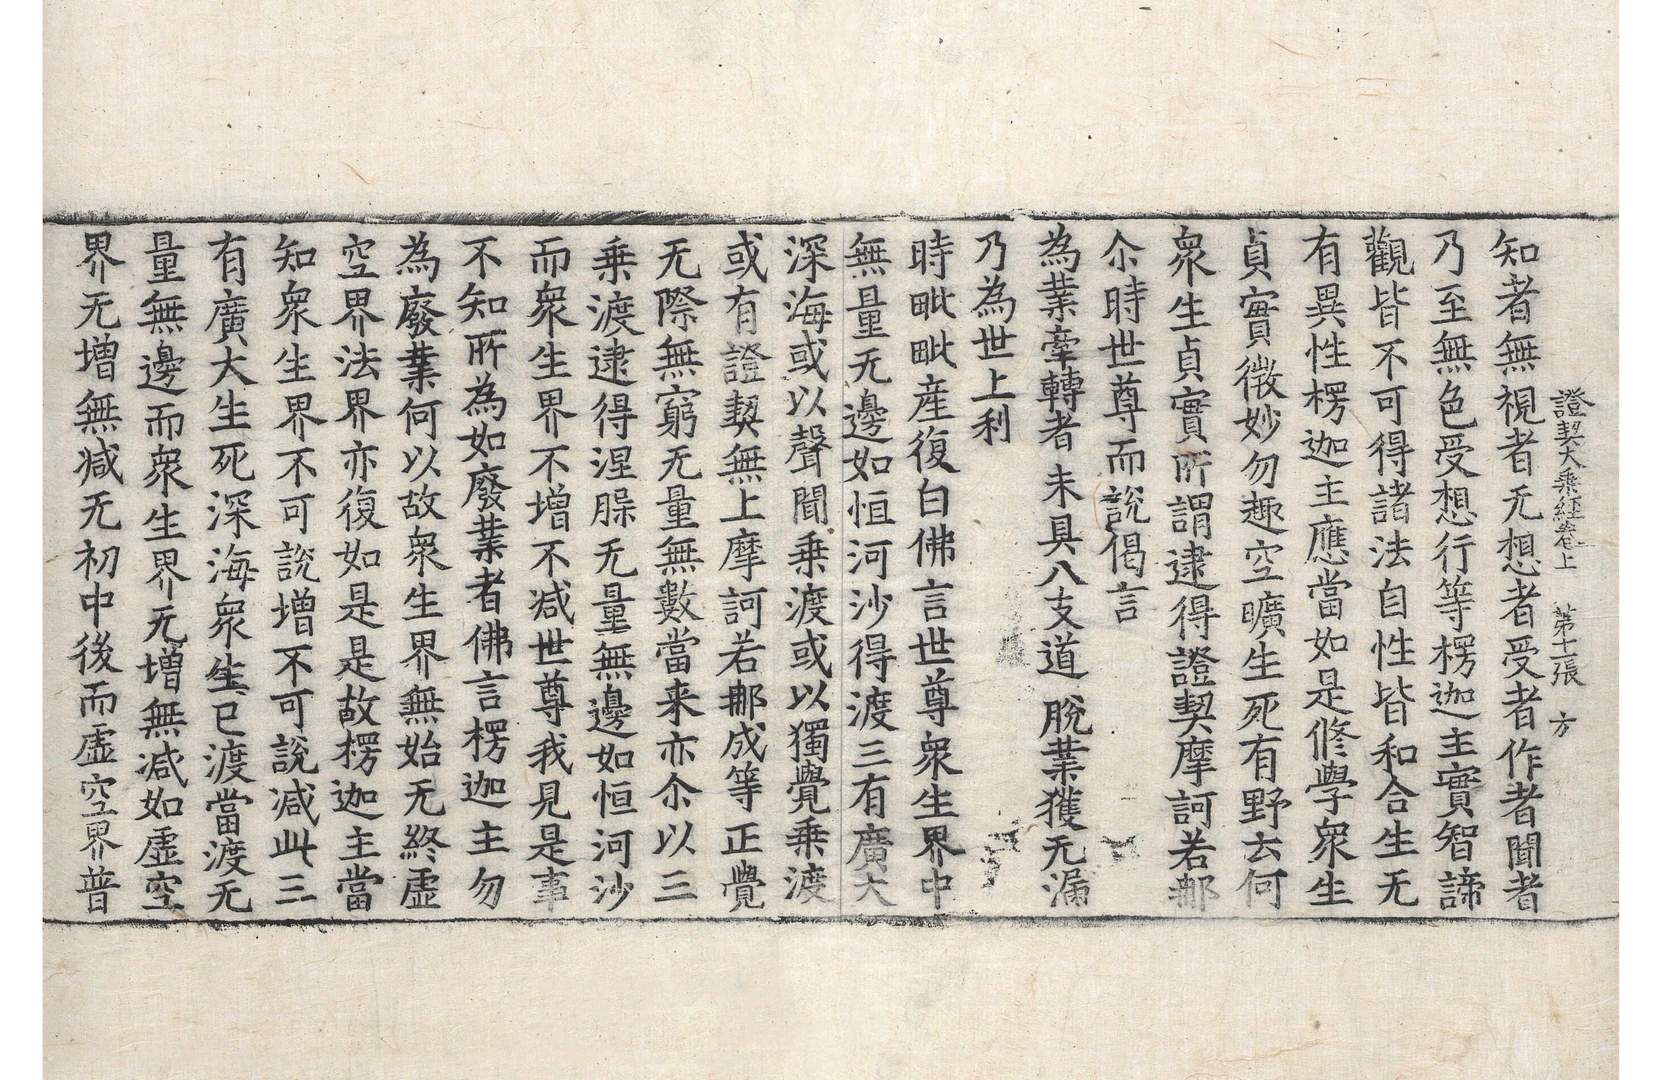 證契大乘經卷上　第十一張　方
知者無視者无想者受者作者聞者
乃至無色受想行等楞迦主實智諦
觀皆不可得諸法自性皆和合生无
有異性楞迦主應當如是修學衆生
貞實微妙勿趣空曠生死有野去何
衆生貞實所謂逮得證契摩訶若那
尒時世尊而說偈言
為業牽轉者　未具八支道　脫業獲无漏
乃為世上利
時毗毗産復白佛言世尊衆生界中
無量无邊如恒河沙得渡三有廣大
深海或以聲聞乗渡或以獨覺乗渡
或有證契無上摩訶若那成等正覺
无際無窮无量無數當来亦尒以三
乗渡逮得涅脲无量無邊如恒河沙
而衆生界不增不减世尊我見是事
不知所為如廢業者佛言楞迦主勿
為廢業何以故衆生界無始无終虚
空界法界亦復如是是故楞迦主當
知衆生界不可說增不可說減此三
有廣大生死深海衆生已渡當渡无
量無邊而衆生界无增無减如虚空
界无增無减无初中後而虚空界普